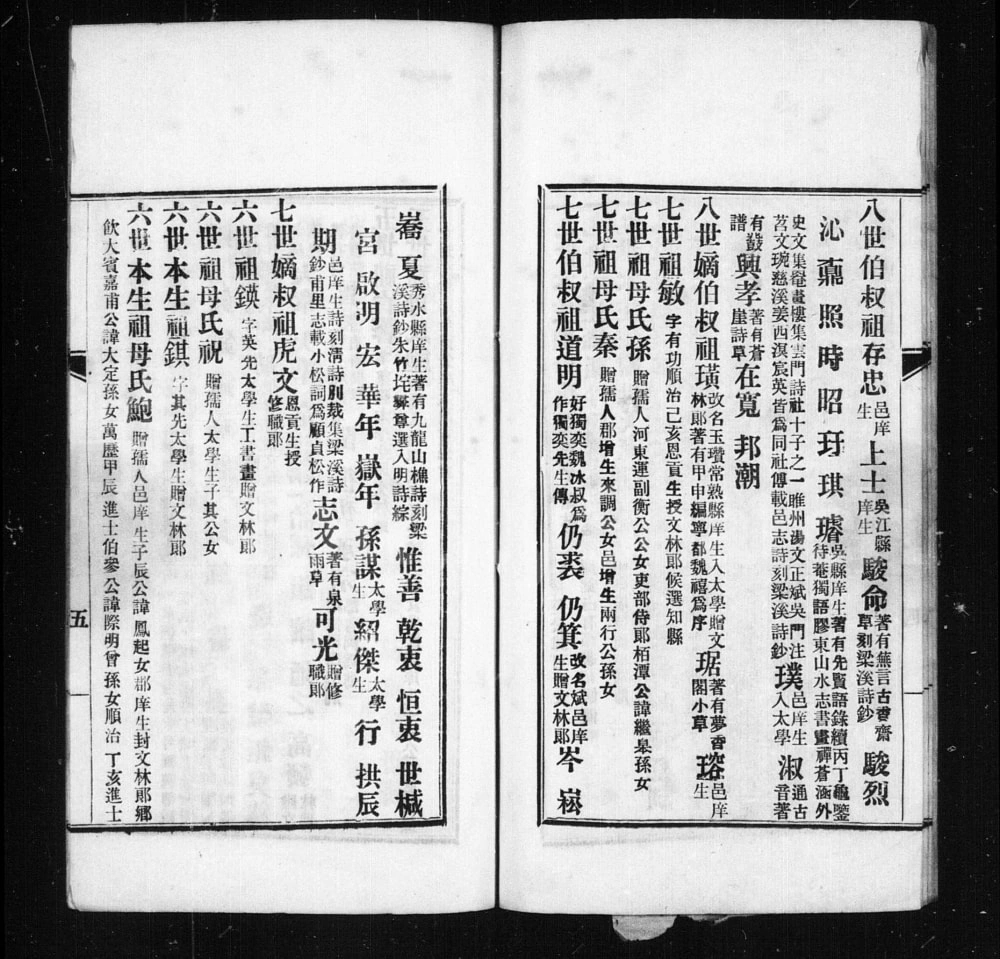 八世伯叔祖存忠邑庠生 上士吳江縣庠生 駿命著有蕉言古香齋草刻梁溪詩鈔 駿烈
沁 鼐 照 時 昭 玡 琪 璿吳縣庠生著有先賢語錄續丙丁龜鑒待菴獨語膠東山水志書畫禪蒼涵外
史文集菴畫樓集雲門詩社十子之一睢州湯文正斌吳門汪苕文琬慈溪姜西溟宸英皆為同社傳載邑志詩刻梁溪詩鈔 璞邑庠生入太學 淑通古音著
有鼓譜 興孝著有蒼崖詩草 在寬 邦潮
八世嫡伯叔祖璜改名玉瓚常熟縣庠生入太學贈文林郎著有甲申編寧都魏禧為序 琚著有夢香閣小草 瑹邑庠生
七世祖敏字有功順治己亥恩貢生授文林郎候選知縣
七世祖母氏孫贈孺人河東運副衡公公女吏部侍郎栢潭公諱繼皋孫女
七世祖母氏秦贈孺人郡增生來調公女邑增生兩行公孫女
七世伯叔祖道明好獨奕魏冰叔為作獨奕先生傳 仍裘 仍箕改名斌邑庠生贈文林郎 岑 崧
崙 夏秀水縣庠生著有九龍山樵詩刻梁溪詩鈔朱竹垞彝尊選入明詩綜 惟善 乾衷 恒衷 世槭
宮 啟明 宏 華年 嶽年 孫謀太學生 紹傑太學生 行 拱辰
期邑庠生詩刻清詩別裁集梁溪詩鈔甫里志載小松詞為顧貞松作 志文著有泉雨草 可光贈修職郎
七世嫡叔祖虎文恩貢生授修職郎
六世祖鍈字英先太學生工書畫贈文林郎
六世祖母氏祝贈孺人太學生子其公女
六世本生祖錤字其先太學生贈文林郎
六世本生祖母氏鮑贈孺人邑庠生子辰公諱鳳起女郡庠生封文林郎鄉
飲大賓嘉甫公諱大定孫女萬歷甲辰進士伯參公諱際明曾孫女順治丁亥進士
五